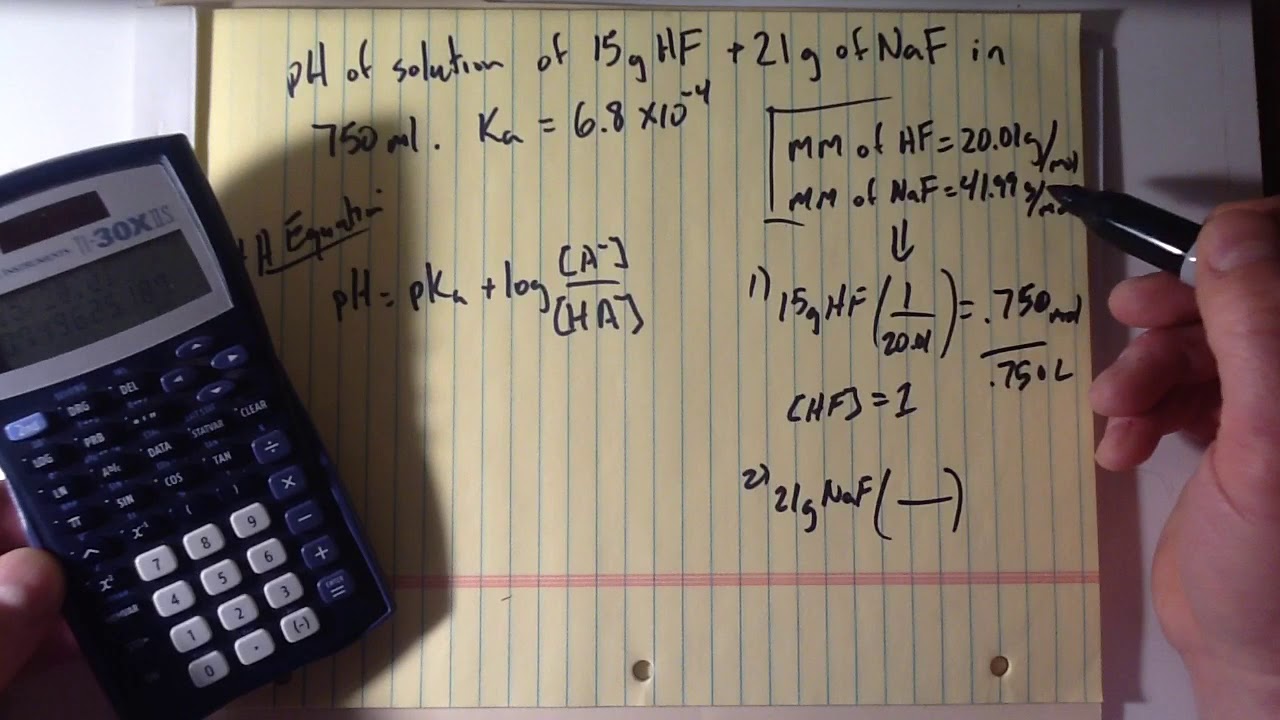 pH of solution of 15g HF + 21g of NaF in
750 ml. Ka = 6.8 x10^-4
MM of HF = 20.01g/mol
MM of NaF = 41.99 g/mol
A Equation
pH = pKa + log [A-]/[HA]
⇓
1) 15g HF (1/20.01) = .750 mol
.750L
[HF] = 1
2) 21g NaF (—)
TI-30X IIS
INSTRUMENTS
2nd DRG DEL
LOG PRB ° ' " CLEAR
LN A b/c DATA STATVAR ÷
π SIN COS TAN ×
^ x⁻¹ ( ) −
x² 7 8 9 +
4 5 6 ENTER =
1 2 3
0 . (-)